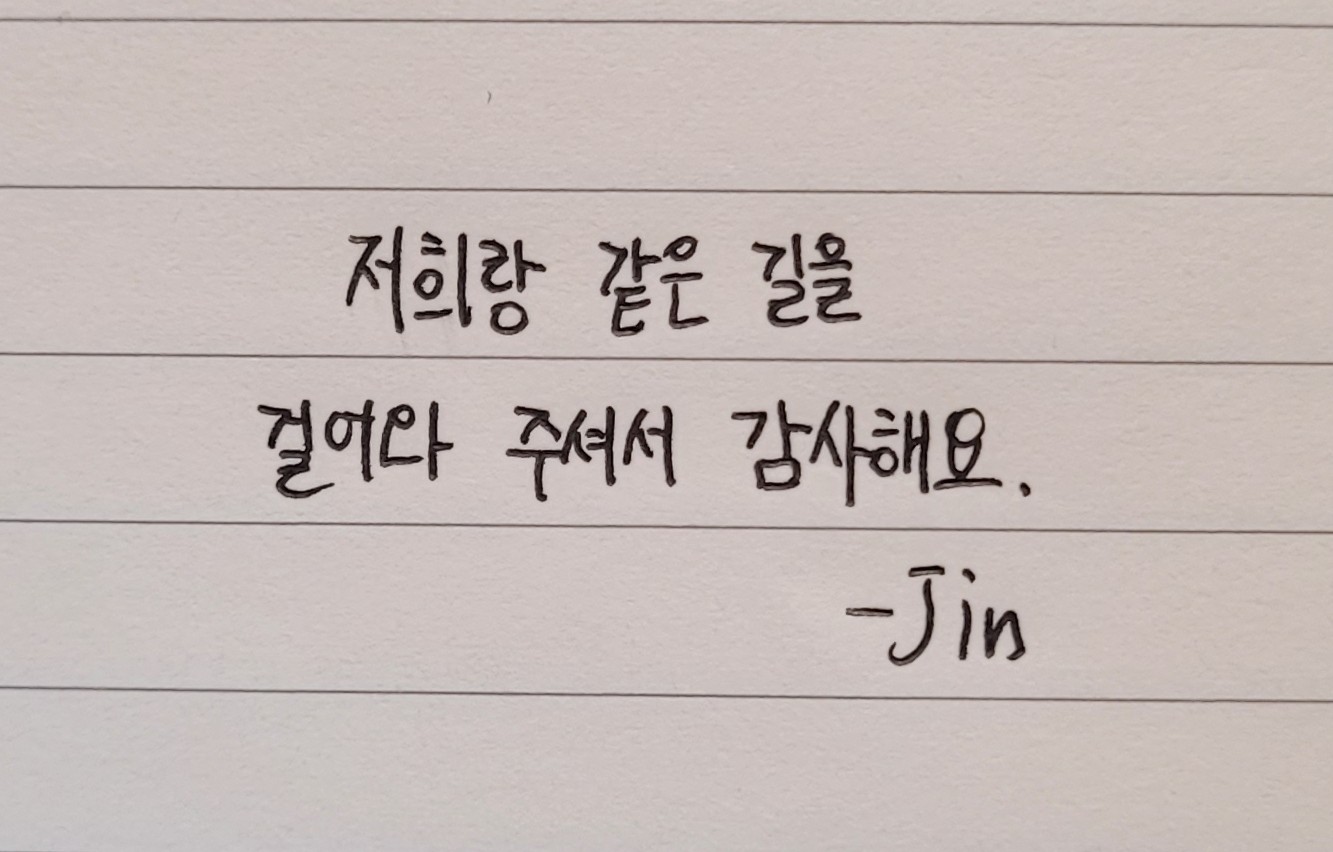 저희랑 같은 길을
걸어와 주셔서 감사해요.
-Jin